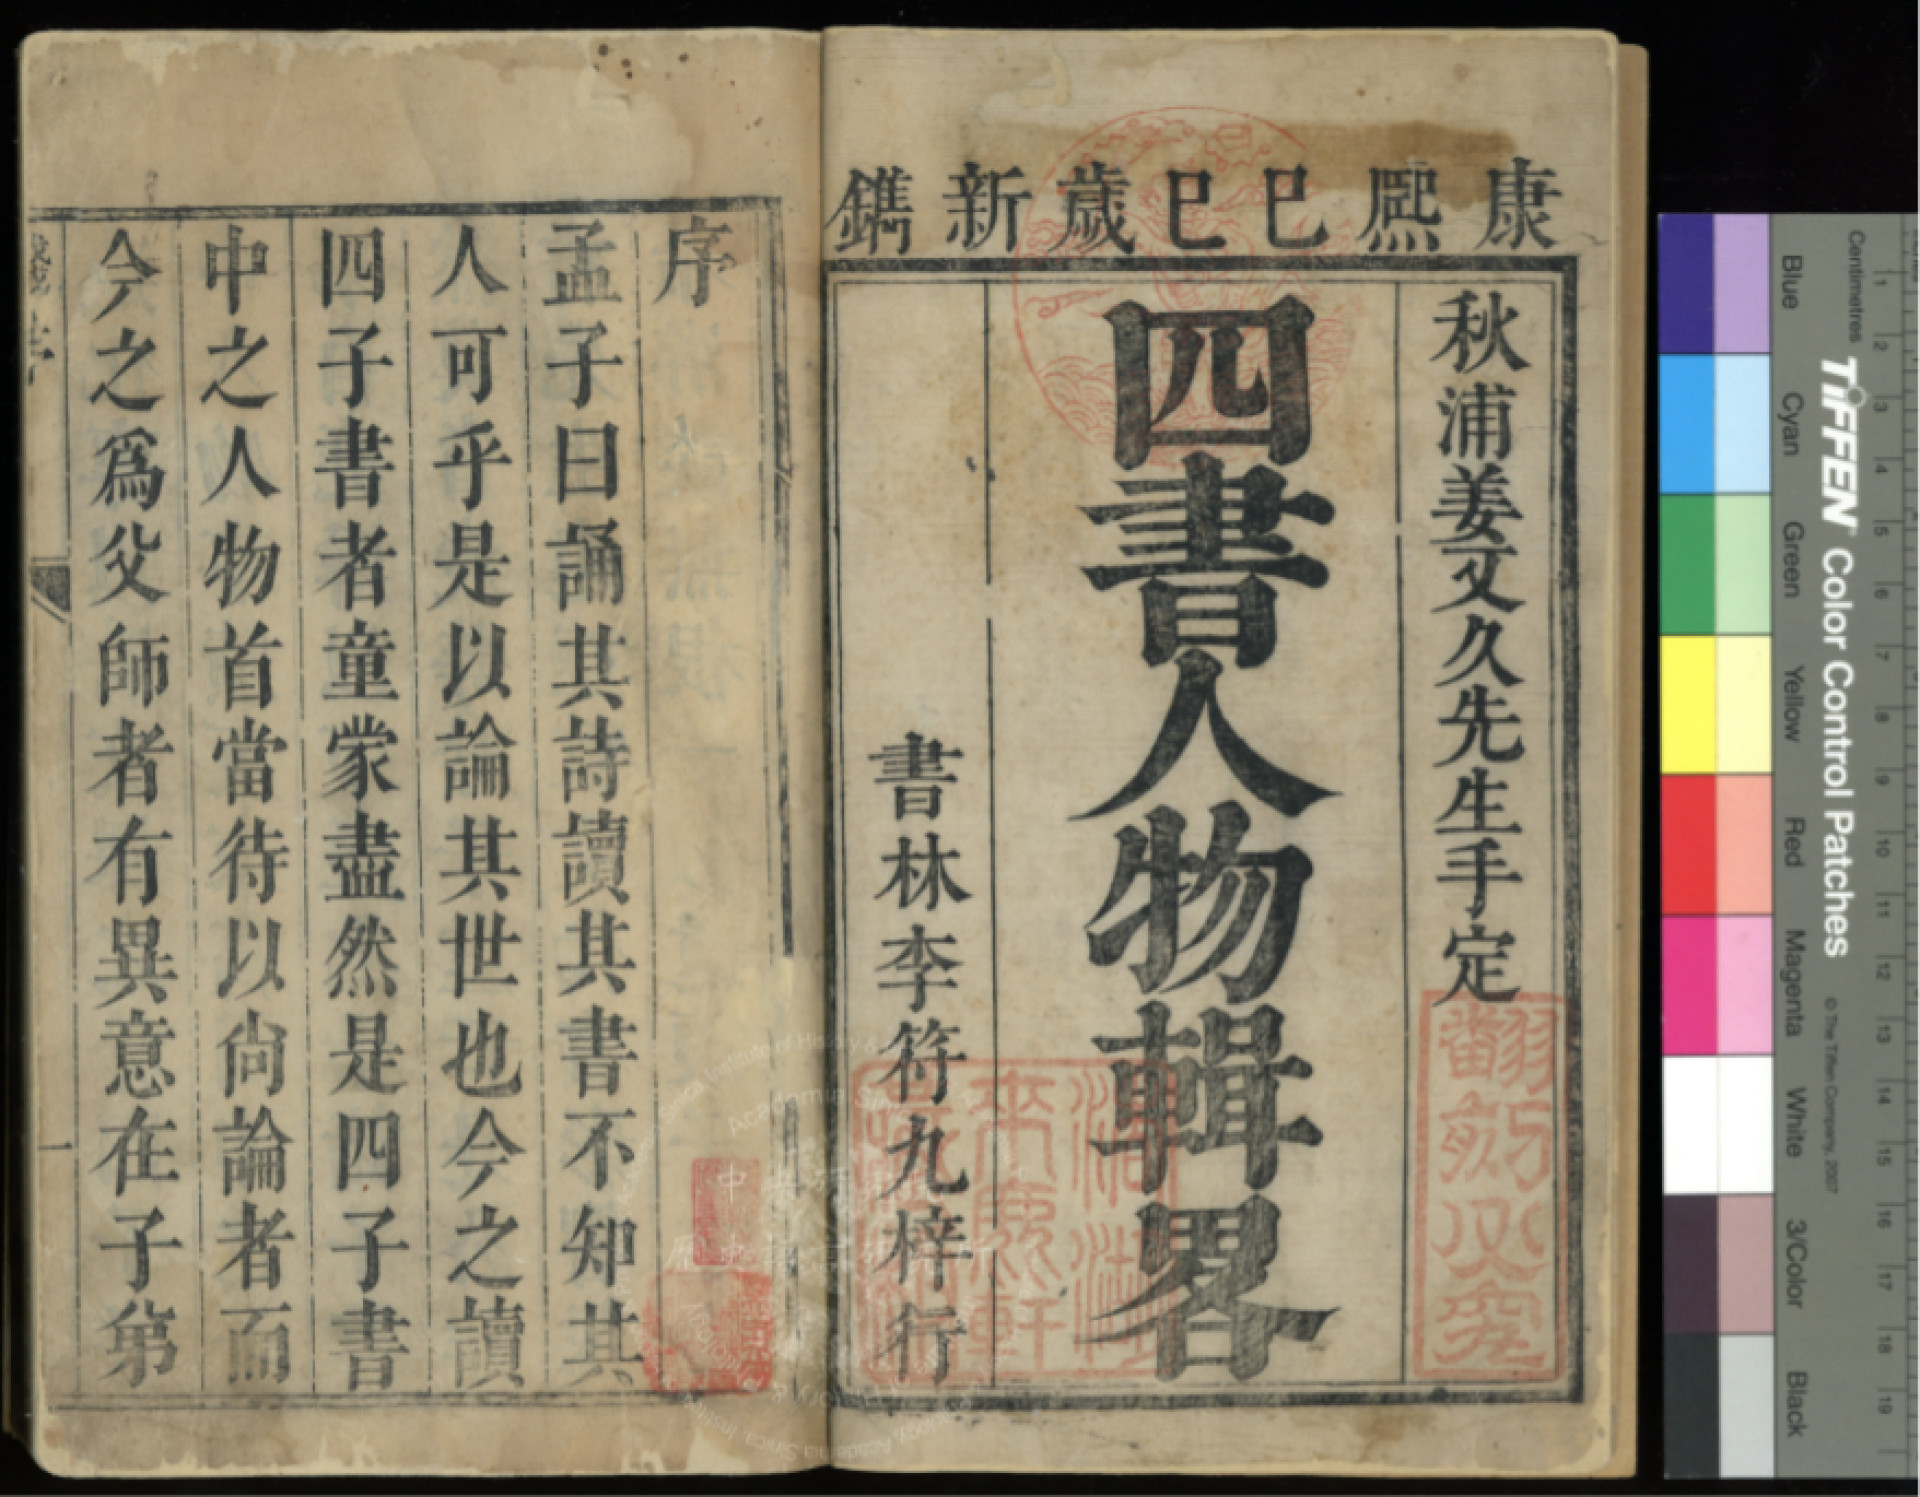 康熈己巳歲新鐫
秋浦姜文久先生手定
四書人物輯畧
書林李符九梓行
序
孟子曰誦其詩讀其書不知其
人可乎是以論其世也今之讀
四子書者童蒙盡然是四子書
中之人物首當待以尙論者而
今之爲父師者有異意在子弟
一
Centimetres
1 2 3 4 5 6 7 8 9 10 11 12 13 14 15 16 17 18 19
TIFFEN Color Control Patches © The Tiffen Company, 2007
Blue Cyan Green Yellow Red Magenta White 3/Color Black